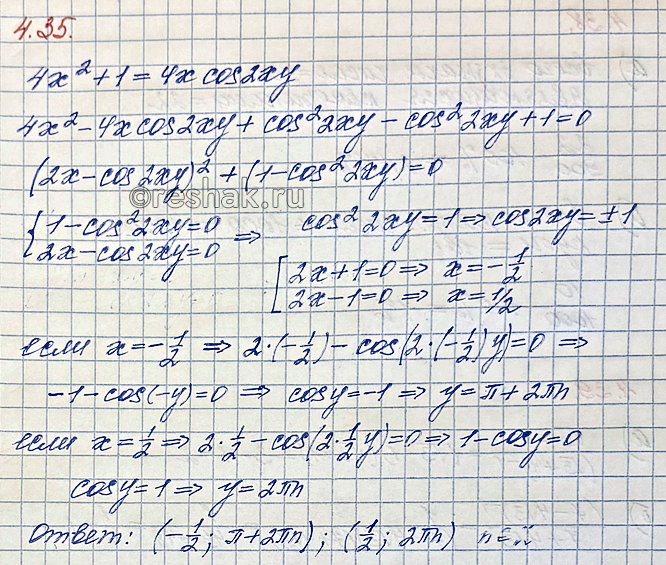 4.35.
4x² + 1 = 4x cos2xy
4x² - 4x cos2xy + cos²2xy - cos²2xy + 1 = 0
(2x - cos2xy)² + (1 - cos²2xy) = 0
©reshak.ru
{ 1 - cos²2xy = 0
2x - cos2xy = 0 ⇒ cos²2xy = 1 ⇒ cos2xy = ±1
[ 2x + 1 = 0 ⇒ x = -1/2
2x - 1 = 0 ⇒ x = 1/2
если x = -1/2 ⇒ 2·(-1/2) - cos(2·(-1/2)y) = 0 ⇒
-1 - cos(-y) = 0 ⇒ cosy = -1 ⇒ y = π + 2πn
если x = 1/2 ⇒ 2·1/2 - cos(2·1/2 y) = 0 ⇒ 1 - cosy = 0
cosy = 1 ⇒ y = 2πn
Ответ: (-1/2; π + 2πn); (1/2; 2πn) n